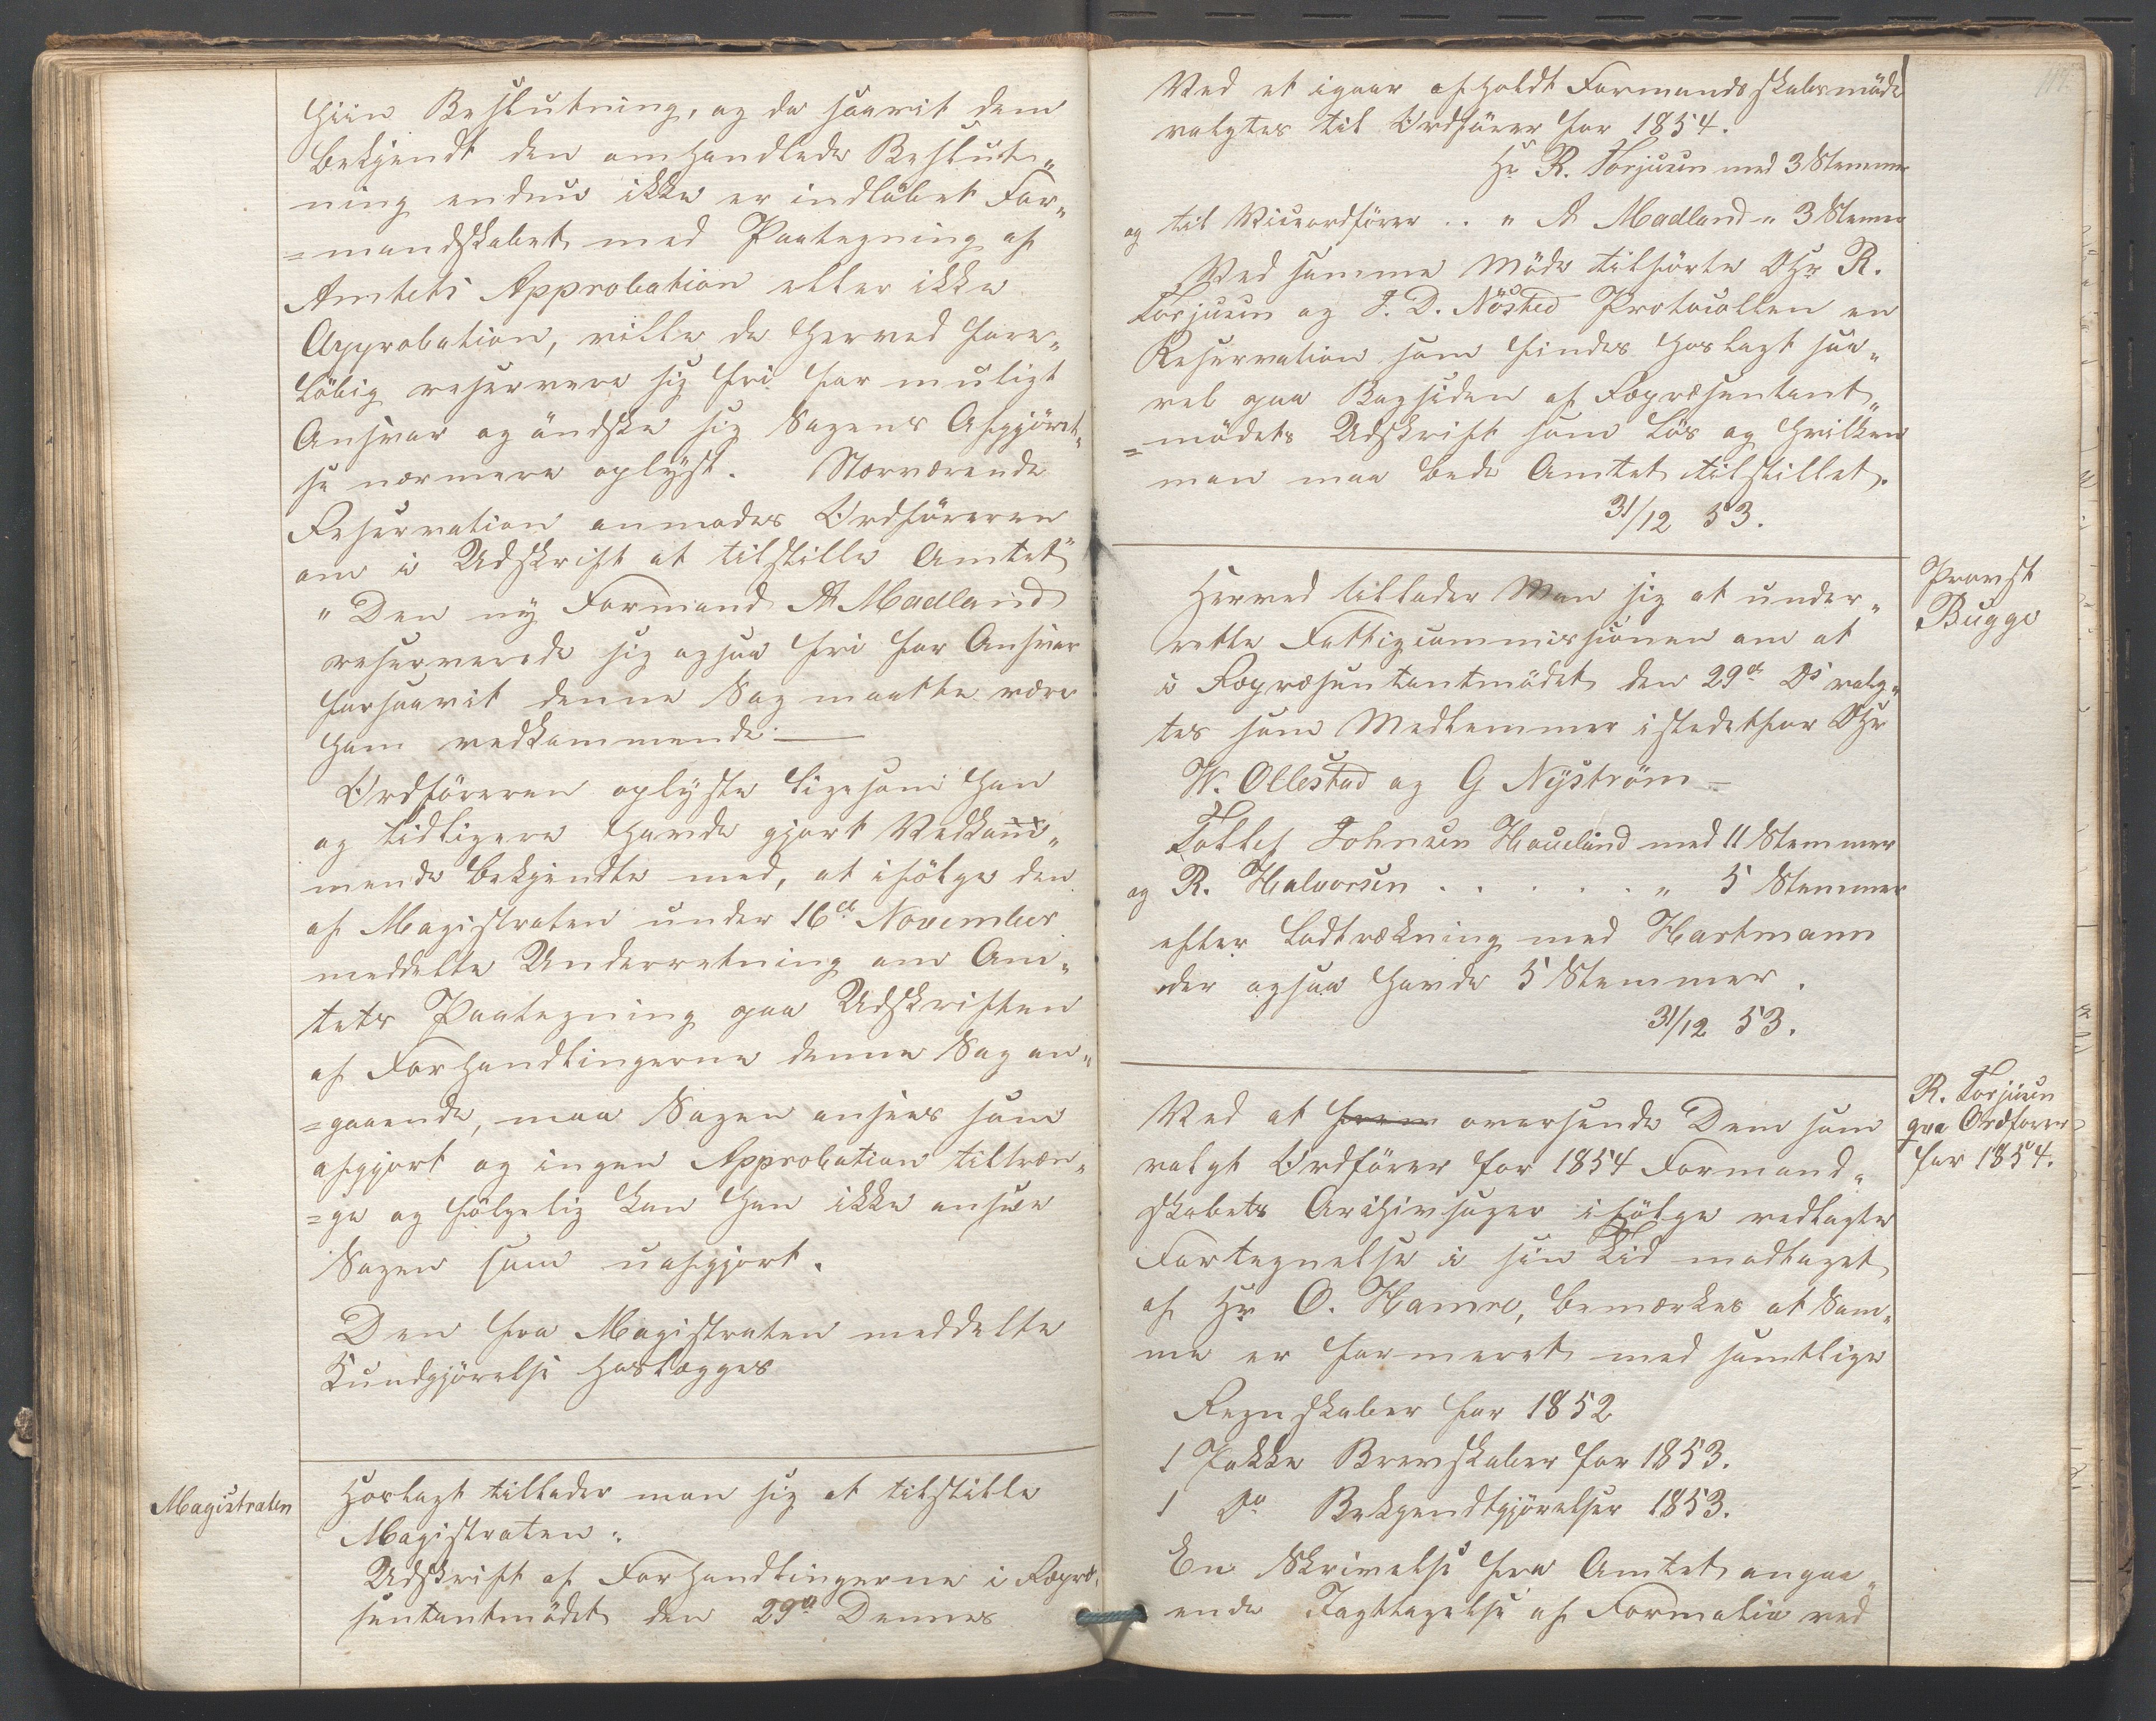 hiin Beslutning, og da saavit dem
bekjendt den omhandlede Beslut„
ning endnu ikke er indløbet For„
=mandskabet med Paategning af
Amtets Approbation eller ikke
Approbation, ville de herved fore„
løbig reservere sig fri for muligt
Ansvar og öndske sig Sagens Afgjörel„
se nærmere oplyst. Nærværende
Reservation anmodes Ordföreren
om i Udskrift at tilstille Amtet"
"Den ny Formand A Madland
reserverede sig ogsaa fri for Ansvar
forsaavit denne Sag maatte være
ham vedkommende.—
Ordföreren oplyste ligesom han
og tidligere havde gjort Vedkom„
mende bekjendte med, at ifölge den
af Magistraten under 16de November
meddelte Underretning om Am„
tets Paategning paa Udskriften
af Forhandlingerne denne Sag an„
=gaaende, maa Sagen ansees som
afgjort og ingen Approbation tiltræn„
=ge og fölgelig kan han ikke ansee
Sagen som uafgjort.
Den fra Magistraten meddelte
Kundgjörelse hoslægges
Magistraten
Hoslagt tillader man sig at tilstille
Magistraten:
Udskrift af Forhandlingerne i Repræ„
sentantmödet den 29de Dennes
Ved et igaar afholdt Formandsskabsmöde
valgtes til Ordförer for 1854.
Hr R. Torjusen med 3 Stemmer
og til Viceordförer .. " A Madland " 3 Stemer
Ved samme Möde tilförte DHr R.
Torjusen og J. D. Nösted Protocollen en
Reservation som findes hoslagt saa„
vel paa Bagsiden af Repræsentant„
=mödets Udskrift som Lös og hvilken
man maa bede Amtet tilstillet.
31/12 53.
Provst
Bugge
Herved tillader Man sig at under„
rette Fattigcommissionen om at
i Repræsentantmödet den 29de Ds valg„
tes som Medlemmer istedetfor DHr
W. Ollestad og G Nyström —
Tollef Johnsen Haueland med 11 Stemmer
og R. Halvorsen . . . . . " 5 Stemmer
efter Lodtrækning med Hartmann
der ogsaa havde 5 Stemmer.
31/12 53.
R. Torjusen
qva Ordförer
for 1854.
Ved at frem oversende Dem som
valgt Ordförer for 1854 Formand„
skabets Archivsager ifölge vedlagte
Fortegnelse i sin Tid modtaget
af Hr O. Hamre, bemærkes at Sam„
me er formeret med samtlige
Regnskaber for 1852
1 Pakke Brevskaber for 1853.
1 Do Bekjendtgjörelser 1853.
En Skrivelse fra Amtet angaa„
ende Iagttagelse af Formalia ved